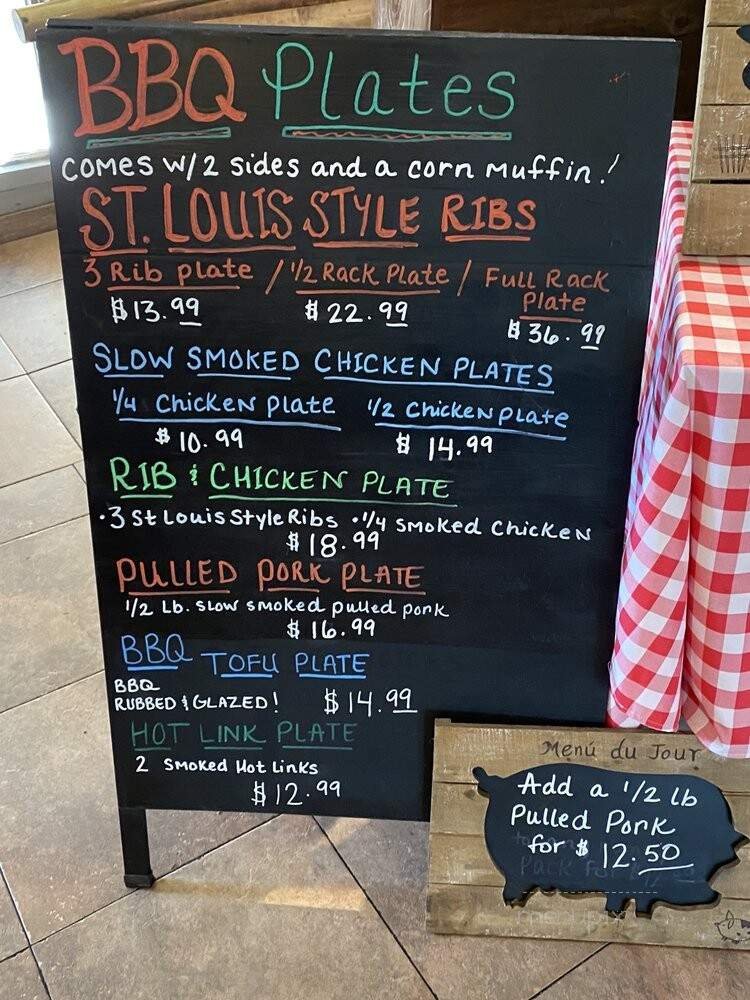 BBQ Plates
comes w/2 sides and a corn muffin!
ST. LOUIS STYLE RIBS
3 Rib plate / 1/2 Rack Plate / Full Rack Plate
$13.99 $22.99 $36.99
SLOW SMOKED CHICKEN PLATES
1/4 Chicken plate 1/2 Chicken plate
$10.99 $14.99
RIB & CHICKEN PLATE
·3 St Louis Style Ribs ·1/4 smoked chicken
$18.99
PULLED PORK PLATE
1/2 Lb. slow smoked pulled pork
$16.99
BBQ TOFU PLATE
BBQ
RUBBED & GLAZED! $14.99
HOT LINK PLATE
2 smoked Hot Links
$12.99
Menú du Jour
Add a 1/2 lb
Pulled Pork
for $12.50